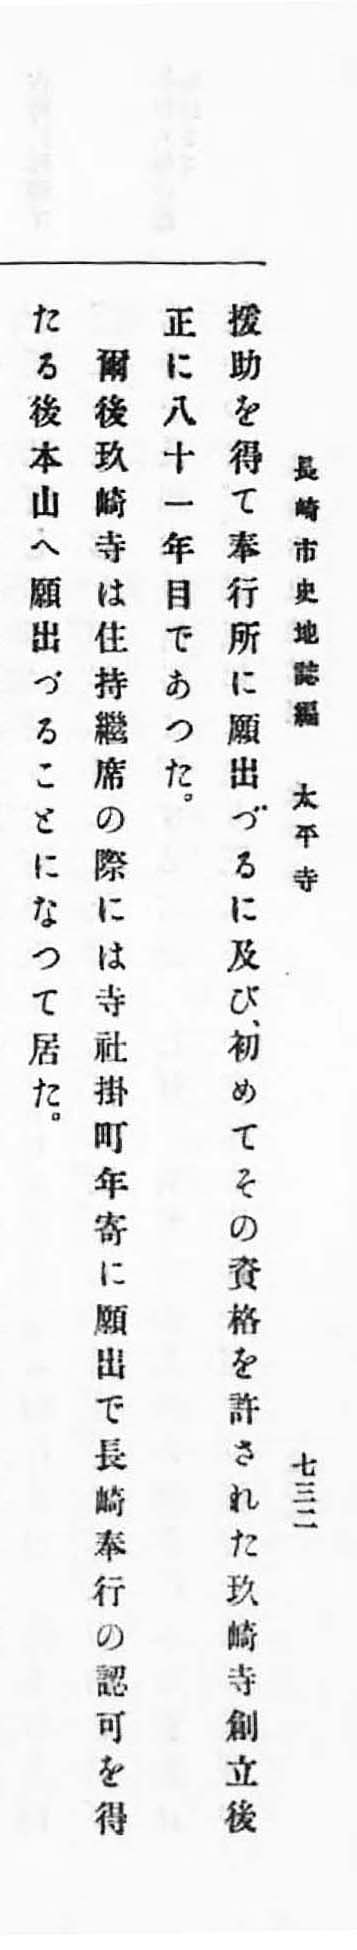 長崎市史地誌編 太平寺 七三二
援助を得て奉行所に願出づるに及び、初めてその資格を許された玖崎寺創立後
正に八十一年目であつた。
爾後玖崎寺は住持繼席の際には寺社掛町年寄に願出で長崎奉行の認可を得
たる後本山へ願出づることになつて居た。